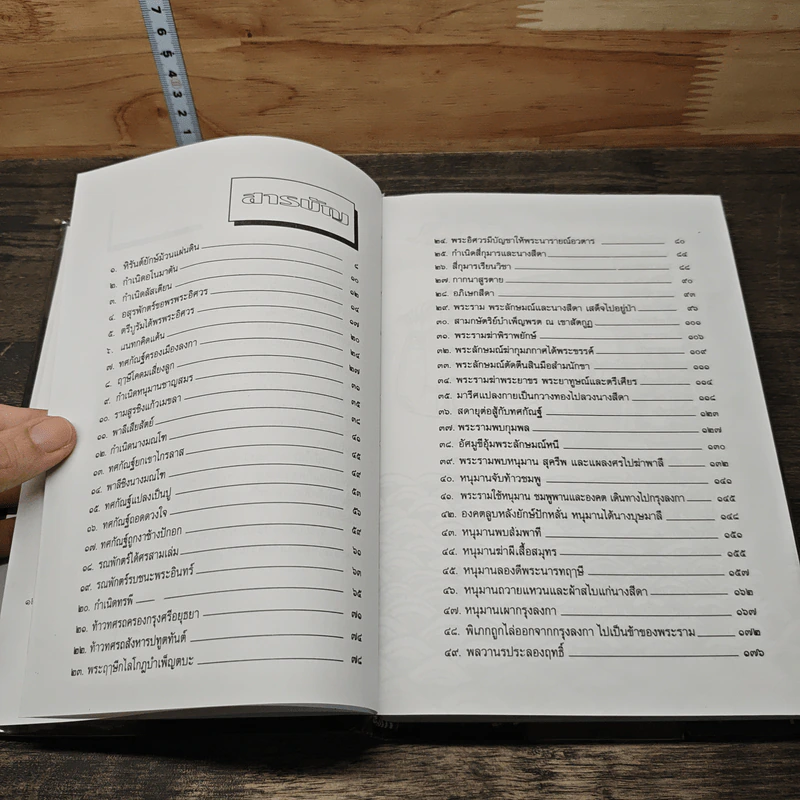 7
6
5
4
3
2
1
สารบัญ
๑. หิรันต์ยักษ์ม้วนแผ่นดิน ๘
๒. กำเนิดอโนมาตัน ๑๐
๓. กำเนิดลัสเตียน ๑๒
๔. อสุรพักตร์ขอพรพระอิศวร ๑๔
๕. ตรีบูรัมได้พรพระอิศวร ๑๗
๖. นนทกคิดแค้น ๒๐
๗. ทศกัณฐ์ครองเมืองลงกา ๒๔
๘. ฤๅษีโคดมเสี่ยงลูก ๒๗
๙. กำเนิดหนุมานชาญสมร ๓๑
๑๐. รามสูรชิงแก้วเมขลา ๓๕
๑๑. พาลีเสียสัตย์ ๓๘
๑๒. กำเนิดนางมณโฑ ๔๑
๑๓. ทศกัณฐ์ยกเขาไกรลาส ๔๕
๑๔. พาลีชิงนางมณโฑ ๔๙
๑๕. ทศกัณฐ์แปลงเป็นปู ๕๓
๑๖. ทศกัณฐ์ถอดดวงใจ ๕๖
๑๗. ทศกัณฐ์ถูกงาช้างปักอก ๕๙
๑๘. รณพักตร์ได้ศรสามเล่ม ๖๑
๑๙. รณพักตร์รบชนะพระอินทร์ ๖๓
๒๐. กำเนิดทรพี ๖๕
๒๑. ท้าวทศรถครองกรุงศรีอยุธยา ๗๑
๒๒. ท้าวทศรถสังหารปทูตทันต์ ๗๔
๒๓. พระฤๅษีกไลโกฏบำเพ็ญตบะ ๗๘
๒๔. พระอิศวรมีบัญชาให้พระนารายณ์อวตาร ๘๐
๒๕. กำเนิดสี่กุมารและนางสีดา ๘๕
๒๖. สี่กุมารเรียนวิชา ๘๘
๒๗. กากนาสูรตาย ๙๐
๒๘. อภิเษกสีดา ๙๓
๒๙. พระราม พระลักษมณ์และนางสีดา เสด็จไปอยู่ป่า ๙๖
๓๐. สามกษัตริย์บำเพ็ญพรต ณ เขาสัตกูฏ ๑๐๑
๓๑. พระรามฆ่าพิราพยักษ์ ๑๐๖
๓๒. พระลักษมณ์ฆ่ากุมภกาศได้พระขรรค์ ๑๐๙
๓๓. พระลักษมณ์ตัดตีนสินมือสำมนักขา ๑๑๑
๓๔. พระรามฆ่าพระยาขร พระยาทูษณ์และตรีเศียร ๑๑๔
๓๕. มารีศแปลงกายเป็นกวางทองไปลวงนางสีดา ๑๑๘
๓๖. สดายุต่อสู้กับทศกัณฐ์ ๑๒๓
๓๗. พระรามพบกุมพล ๑๒๗
๓๘. อัศมูขีอุ้มพระลักษมณ์หนี ๑๓๐
๓๙. พระรามพบหนุมาน สุครีพ และแผลงศรไปฆ่าพาลี ๑๓๒
๔๐. หนุมานจับท้าวชมพู ๑๔๑
๔๑. พระรามใช้หนุมาน ชมพูพานและองคต เดินทางไปกรุงลงกา ๑๔๕
๔๒. องคตลูบหลังยักษ์ปักหลั่น หนุมานได้นางบุษมาลี ๑๔๘
๔๓. หนุมานพบสัมพาที ๑๕๑
๔๔. หนุมานฆ่าผีเสื้อสมุทร ๑๕๕
๔๕. หนุมานลองดีพระนารทฤๅษี ๑๕๗
๔๖. หนุมานถวายแหวนและผ้าสไบแก่นางสีดา ๑๖๒
๔๗. หนุมานเผากรุงลงกา ๑๖๗
๔๘. พิเภกถูกไล่ออกจากกรุงลงกา ไปเป็นข้าของพระราม ๑๗๒
๔๙. พลวานรประลองฤทธิ์ ๑๗๖